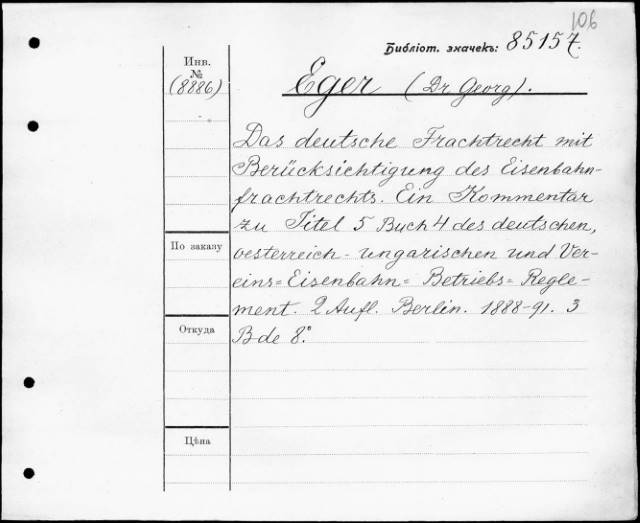 106
Библіот. значекъ: 85157.
Инв.
№
(8886)
Eger (Dr. Georg).
Das deutsche Frachtrecht mit
Berücksichtigung des Eisenbahn-
frachtrechts. Ein Kommentar
zu Titel 5 Buch 4 des deutschen,
oesterreich-ungarischen und Ver-
eins=Eisenbahn=Betriebs=Regle-
ment. 2 Aufl. Berlin. 1888-91. 3
Bde 8.º
По заказу
Откуда
Цѣна